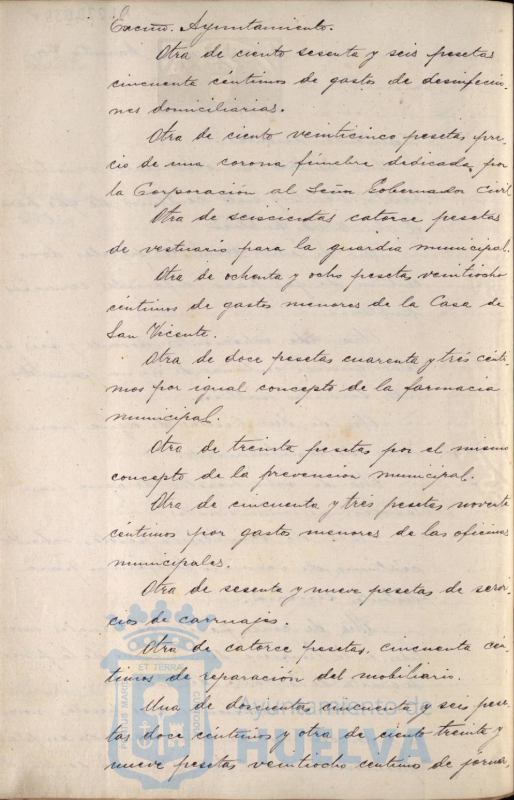 Excmo. Ayuntamiento.
Otra de ciento sesenta y seis pesetas
cincuenta céntimos de gastos de desinfeccio-
nes domiciliarias.
Otra de ciento veinticinco pesetas pre-
cio de una corona fúnebre dedicada por
la Corporación al Señor Gobernador Civil
Otra de seiscientas catorce pesetas
de vestuario para la guardia municipal.
Otra de ochenta y ocho pesetas veintiocho
céntimos de gastos menores de la Casa de
San Vicente.
Otra de doce pesetas cuarenta y tres cénti-
mos por igual concepto de la farmacia
municipal.
Otra de treinta pesetas por el mismo
concepto de la prevencion municipal.
Otra de cincuenta y tres pesetas noventa
céntimos por gastos menores de las oficinas
municipales.
Otra de sesenta y nueve pesetas de servi-
cios de carruajes.
Otra de catorce pesetas, cincuenta cen-
timos de reparación del mobiliario.
Una de doscientas cincuenta y seis pese-
tas doce centimos y otra de ciento treinta y
nueve pesetas veintiocho centimos de jorna-
PORTUS MARIS
ET TERRAE
CUSTODIA
Ayuntamiento de
HUELVA